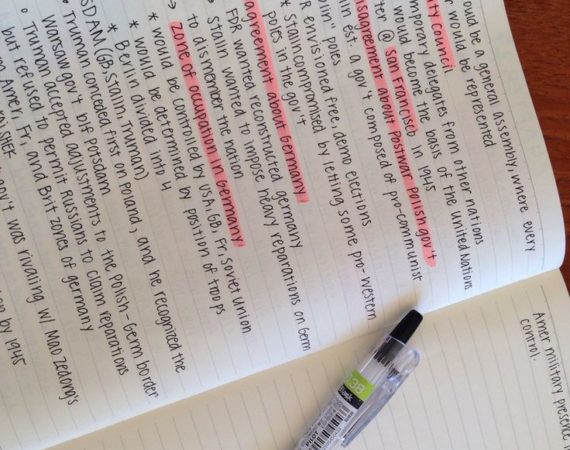 ould be a general assembly, where every
r would be represented
ity council
temporary delegates from other nations
would become the basis of the United Nations
ter @ San Francisco in 1945
isagreement about Postwar Polish gov't
lin es a gov't composed of pro-communist
poles
R envisioned free, demo elections
* Stalin compromised by letting some pro-western
poles in the gov't
agreement about Germany
FDR wanted reconstructed germany
* Stalin wanted to impose heavy reparations on Germ
to dismember the nation
→ zone of occupation in Germany
* would be controlled by USA, GB, Fr, Soviet Union
* would be determined by position of troops
* Berlin divided into 4
SDAM (GB, Stalin, Truman)
Truman conceded first on Poland, and he recognized the
Warsaw gov't b/f Potsdam
○ Truman accepted adjustments to the Polish-Germ border
but refused to permit Russians to claim reparations
Amer, Fr, and Brit zones of germany
gov't was rivaling w/ Mao Zedong's
by 1945
Amer military presence
control.
PILOT